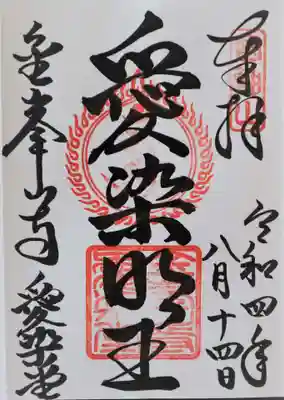 奉拝
令和四年
八月十四日
愛染明王
金峯山寺
愛染堂